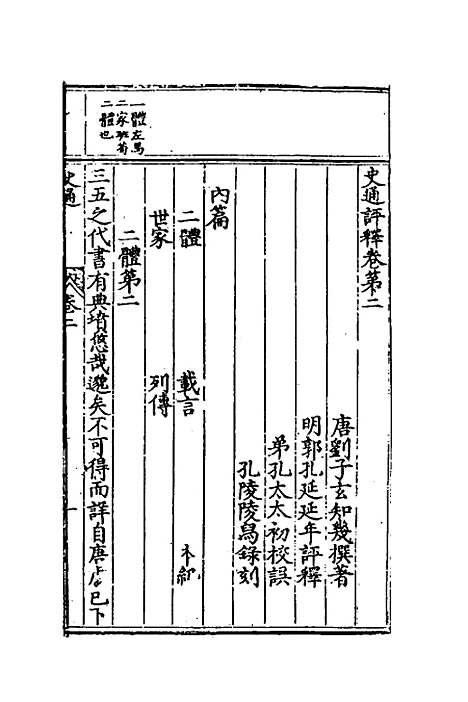 史通評釋卷第二
唐劉子玄知幾撰著
明郭孔延延年評釋
弟孔太太初校誤
孔陵陵舄錄刻
內篇
二體 載言 本紀
世家 列傳
二體第二
三五之代書有典墳悠哉邈矣不可得而詳自唐虞已下
一體左馬
二家班荀
二體也
史通 卷二 一